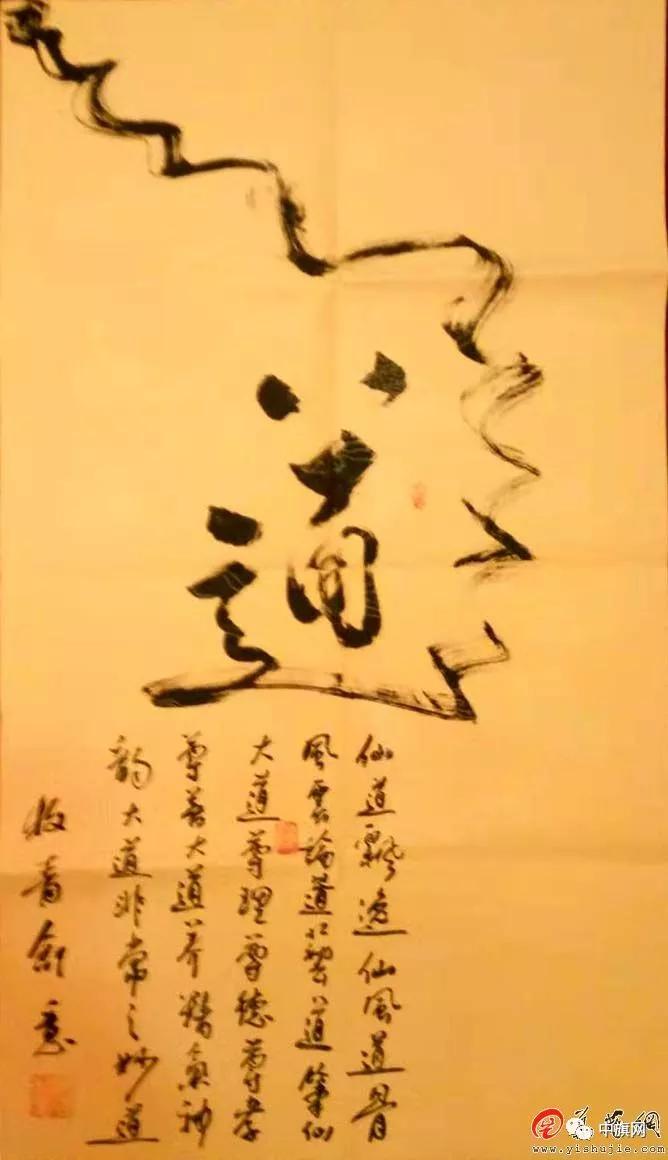 道
仙道飄逸仙風道骨
風雲論道道筆仙
大道尊理尊德尊孝
尊善大道養精氣神
韵大道非常之妙道
意
中旗网
www.yishujie.com